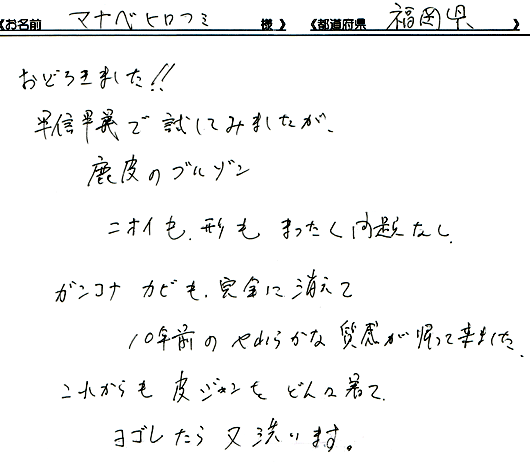 《お名前 マナベヒロフミ 様》 《都道府県 福岡県 》
おどろきました!!
半信半疑で試してみましたが、
鹿皮のブルゾン
ニオイも、形もまったく問題なし
ガンコナカビも、完全に消えて
10年前のやわらかな質感が帰って来ました。
これからも皮ジャンをどんどん着て、
ヨゴレたら又洗います。